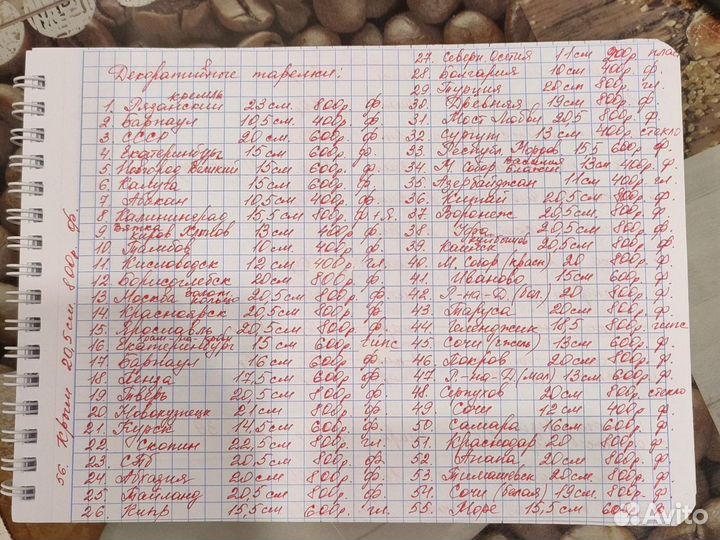 Декоративные тарелки:
кремль
1. Рязанский 23см 800р. ф.
2. Барнаул 10,5см 400р ф.
3. СССР 20см. 600р. ф.
4. Екатеринбург 15см 600р. ф.
5. Новгород Великий 15см 600р. ф.
6. Калуга 15см 600р. ф.
7. Абакан 10,5см 400р. ф.
8. Калининград 15,5см 800р. ф.+я.
Вятка
9. Киров 13см 400р. ф.
10. Тамбов 10см 400р. ф.
11. Кисловодск 12см 400р. гл.
12. Борисоглебск 20см 800р. ф.
13. Москва Золот. кольцо 20,5см 800р. ф.
14. Красноярск 20,5см 800р. ф.
15. Ярославль 20,5см 800р. ф.
Храм-на-Крови
16. Екатеринбург 15см 600р. гипс
17. Барнаул 16см 600р. ф.
18. Пенза 17,5см 600р. ф.
19. Тверь 20,5см 800р. ф.
20. Новокузнецк 21см 800р. ф.
21. Курск 14,5см 600р. ф.
22. Скопин 22,5см 800р. гл.
23. СПб 20,5см 800р. ф.
24. Абхазия 20см 800р. ф.
25. Тайланд 20,5см 800р. ф.
26. Кипр 15,5см 600р. гл.
27. Северн. Осетия 11см 400р. плас
28. Болгария 10см 400р. ф.
29. Турция 20см 800р. гл.
30. Древняя 19см 800р. ф.
31. Мост Любви 20,5 800р. ф.
32. Сургут 13см 400р. стекло
33. Республ. Мордов. 15,5 600р. ф.
Василия
34. М. Собор Блажен. 13см 400р. ф.
35. Азербайджан 11см 400р. гл.
36. 20,5см 800р. ф.
37. Воронеж 20,5см. 800р. ф.
38. Уфа 20,5см 800р. ф.
Куйбышев
39. 20,5см 800р. ф.
40. М. Собор (красн) 20 800р. ф.
41. Иваново 15см 600р. ф.
42. Р.-на-Д. (бол.) 20 800р. ф.
43. Таруса 20см 800р. ф.
44. Геленджик 18,5 800р. гипс
45. Сочи (синь) 13см 600р. ф.
46. Покров 20см 800р. ф.
47. Р.-на-Д. (мал) 13см 600р. ф.
48. Серпухов 20см 800р. стекло
49. Сочи 12см 400р. ф.
50. Самара 16см 600р. ф.
51. Краснодар 20 800р. ф.
52. Анапа 20см 800р. ф.
53. Тимашевск 20см. 800р. ф.
54. Сочи (белая) 19см. 800р. ф.
55. Море 15,5см 600р. ф.
56. Крым 20,5см. 800р. ф
Avito